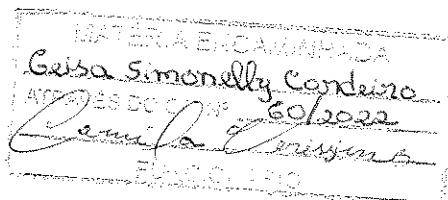 MATÉRIA ENCAMINHADA
Geisa Simonelly Cordeiro
ATRAVÉS DO Nº 60/2022
Camila Verissimo